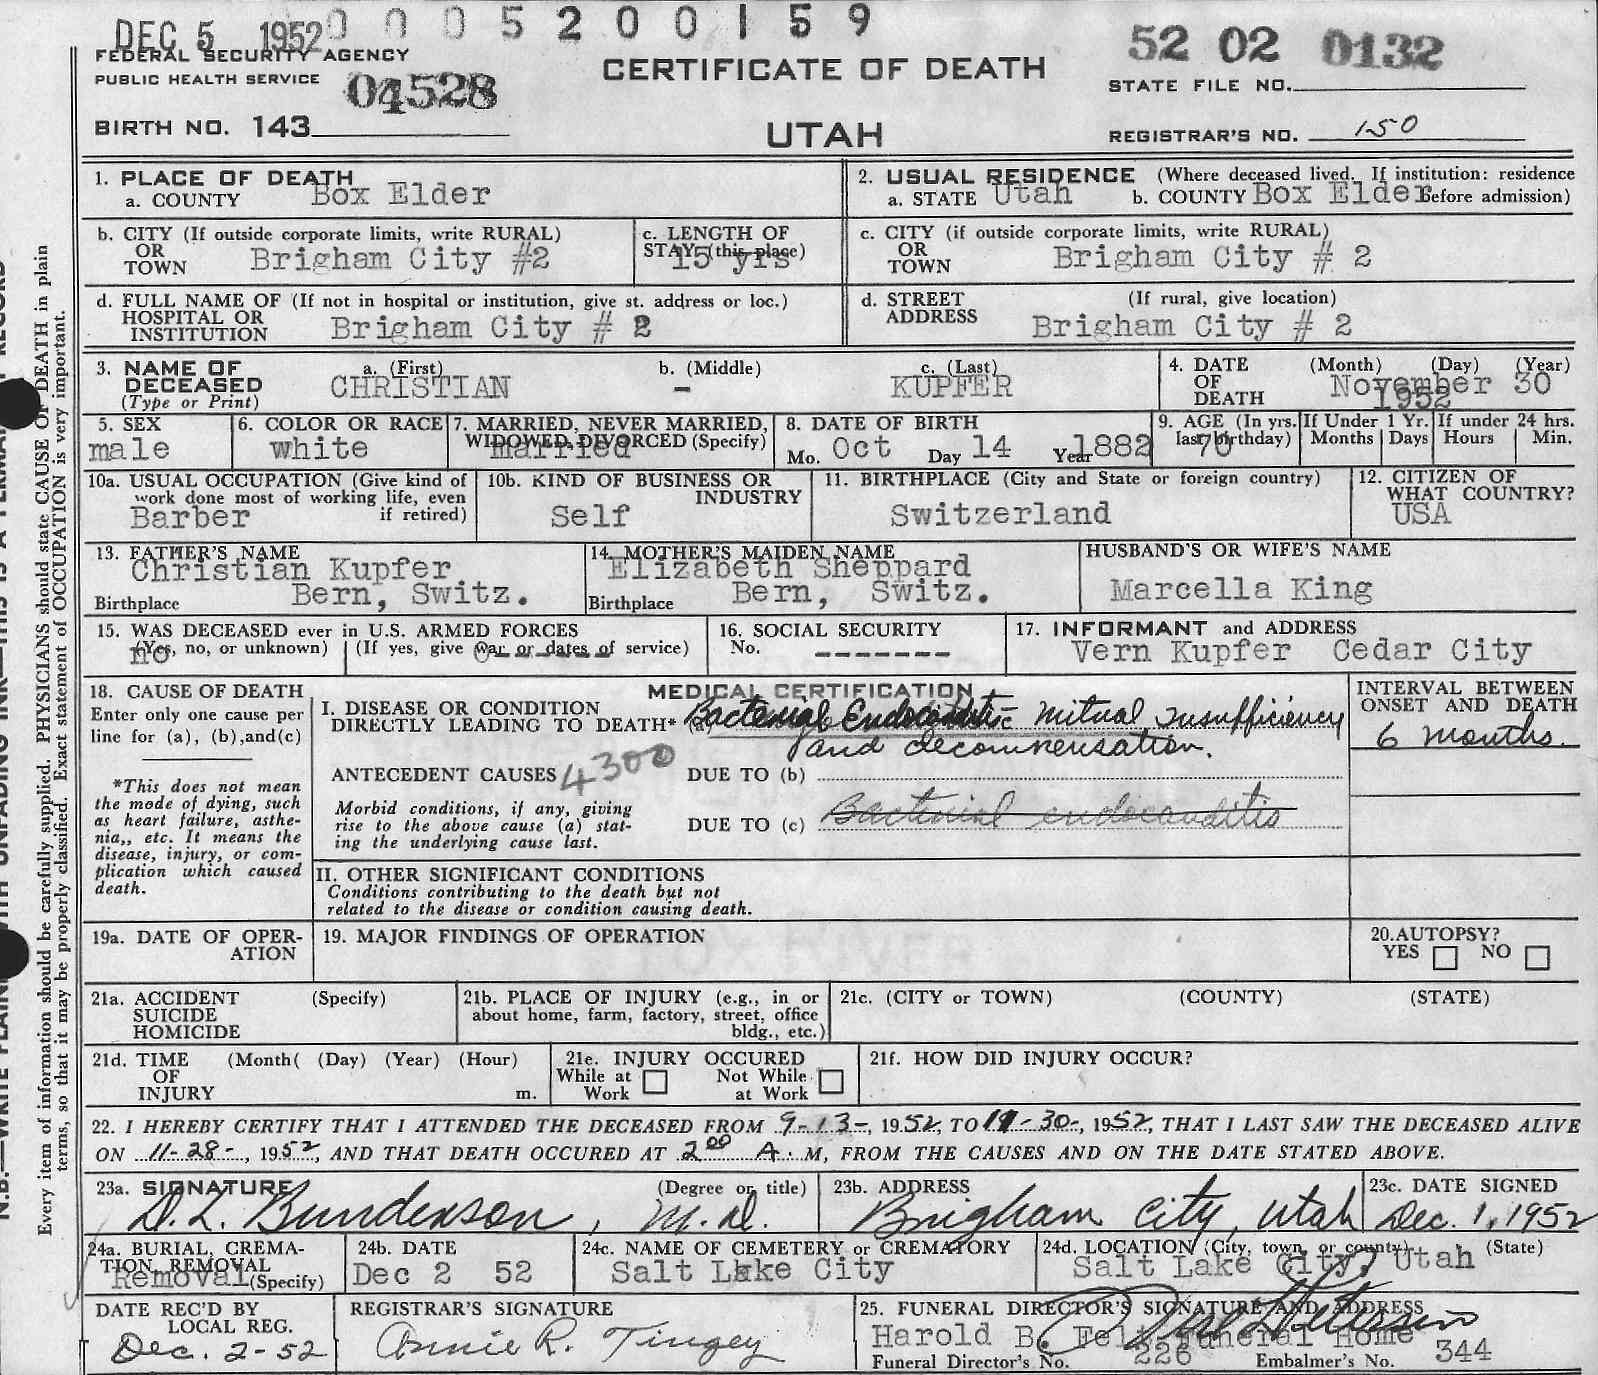 DEC 5 1952 0 0 0 5 2 0 0 1 5 9
FEDERAL SECURITY AGENCY
PUBLIC HEALTH SERVICE 04528
BIRTH NO. 143
CERTIFICATE OF DEATH
UTAH
52 02 0132
STATE FILE NO.
REGISTRAR'S NO. 150
N.B.—WRITE PLAINLY WITH UNFADING INK—THIS IS A PERMANENT RECORD
Every item of information should be carefully supplied. PHYSICIANS should state CAUSE OF DEATH in plain
terms, so that it may be properly classified. Exact statement of OCCUPATION is very important.
1. PLACE OF DEATH
a. COUNTY Box Elder
2. USUAL RESIDENCE (Where deceased lived. If institution: residence
a. STATE Utah b. COUNTY Box Elder before admission)
b. CITY (If outside corporate limits, write RURAL)
OR
TOWN Brigham City #2
c. LENGTH OF
STAY (this place)
15 yrs
c. CITY (if outside corporate limits, write RURAL)
OR
TOWN Brigham City # 2
d. FULL NAME OF (If not in hospital or institution, give st. address or loc.)
HOSPITAL OR
INSTITUTION Brigham City # 2
d. STREET (If rural, give location)
ADDRESS Brigham City # 2
3. NAME OF DECEASED
(Type or Print)
a. (First) b. (Middle) c. (Last)
CHRISTIAN – KUPFER
4. DATE OF DEATH (Month) (Day) (Year)
November 30
1952
5. SEX
male
6. COLOR OR RACE
white
7. MARRIED, NEVER MARRIED,
WIDOWED, DIVORCED (Specify)
married
8. DATE OF BIRTH
Mo. Oct Day 14 Year 1882
9. AGE (In yrs. last birthday)
70
If Under 1 Yr.
Months Days
If under 24 hrs.
Hours Min.
10a. USUAL OCCUPATION (Give kind of
work done most of working life, even
if retired)
Barber
10b. KIND OF BUSINESS OR
INDUSTRY
Self
11. BIRTHPLACE (City and State or foreign country)
Switzerland
12. CITIZEN OF
WHAT COUNTRY?
USA
13. FATHER'S NAME
Christian Kupfer
Birthplace Bern, Switz.
14. MOTHER'S MAIDEN NAME
Elizabeth Sheppard
Birthplace Bern, Switz.
HUSBAND'S OR WIFE'S NAME
Marcella King
15. WAS DECEASED ever in U.S. ARMED FORCES
(Yes, no, or unknown) (If yes, give war or dates of service)
no
16. SOCIAL SECURITY
No. -------
17. INFORMANT and ADDRESS
Vern Kupfer Cedar City
18. CAUSE OF DEATH
Enter only one cause per
line for (a), (b), and (c)
*This does not mean
the mode of dying, such
as heart failure, asthe-
nia,, etc. It means the
disease, injury, or com-
plication which caused
death.
MEDICAL CERTIFICATION
I. DISEASE OR CONDITION
DIRECTLY LEADING TO DEATH* (a) Bacterial Endocarditis mitral insufficiency
and decompensation.
ANTECEDENT CAUSES 4300 DUE TO (b)
Morbid conditions, if any, giving
rise to the above cause (a) stat-
ing the underlying cause last.
DUE TO (c) Bacterial endocarditis
INTERVAL BETWEEN
ONSET AND DEATH
6 months.
II. OTHER SIGNIFICANT CONDITIONS
Conditions contributing to the death but not
related to the disease or condition causing death.
19a. DATE OF OPER-
ATION
19. MAJOR FINDINGS OF OPERATION
20. AUTOPSY?
YES NO
21a. ACCIDENT (Specify)
SUICIDE
HOMICIDE
21b. PLACE OF INJURY (e.g., in or
about home, farm, factory, street, office
bldg., etc.)
21c. (CITY or TOWN) (COUNTY) (STATE)
21d. TIME (Month( (Day) (Year) (Hour)
OF
INJURY m.
21e. INJURY OCCURED
While at Work Not While at Work
21f. HOW DID INJURY OCCUR?
22. I HEREBY CERTIFY THAT I ATTENDED THE DECEASED FROM 9-13-, 1952, TO 11-30-, 1952, THAT I LAST SAW THE DECEASED ALIVE
ON 11-28-, 1952, AND THAT DEATH OCCURED AT 2 00 A. M, FROM THE CAUSES AND ON THE DATE STATED ABOVE.
23a. SIGNATURE (Degree or title)
D. L. Bunderson, M.D.
23b. ADDRESS
Brigham City, Utah
23c. DATE SIGNED
Dec. 1, 1952
24a. BURIAL, CREMA-
TION, REMOVAL (Specify)
Removal
24b. DATE
Dec 2 52
24c. NAME OF CEMETERY or CREMATORY
Salt Lake City
24d. LOCATION (City, town, or county) (State)
Salt Lake City, Utah
DATE REC'D BY
LOCAL REG.
Dec. 2-52
REGISTRAR'S SIGNATURE
Annie R. Tingey
25. FUNERAL DIRECTOR'S SIGNATURE AND ADDRESS
Harold B. Felt Funeral Home
Funeral Director's No. 226 Embalmer's No. 344